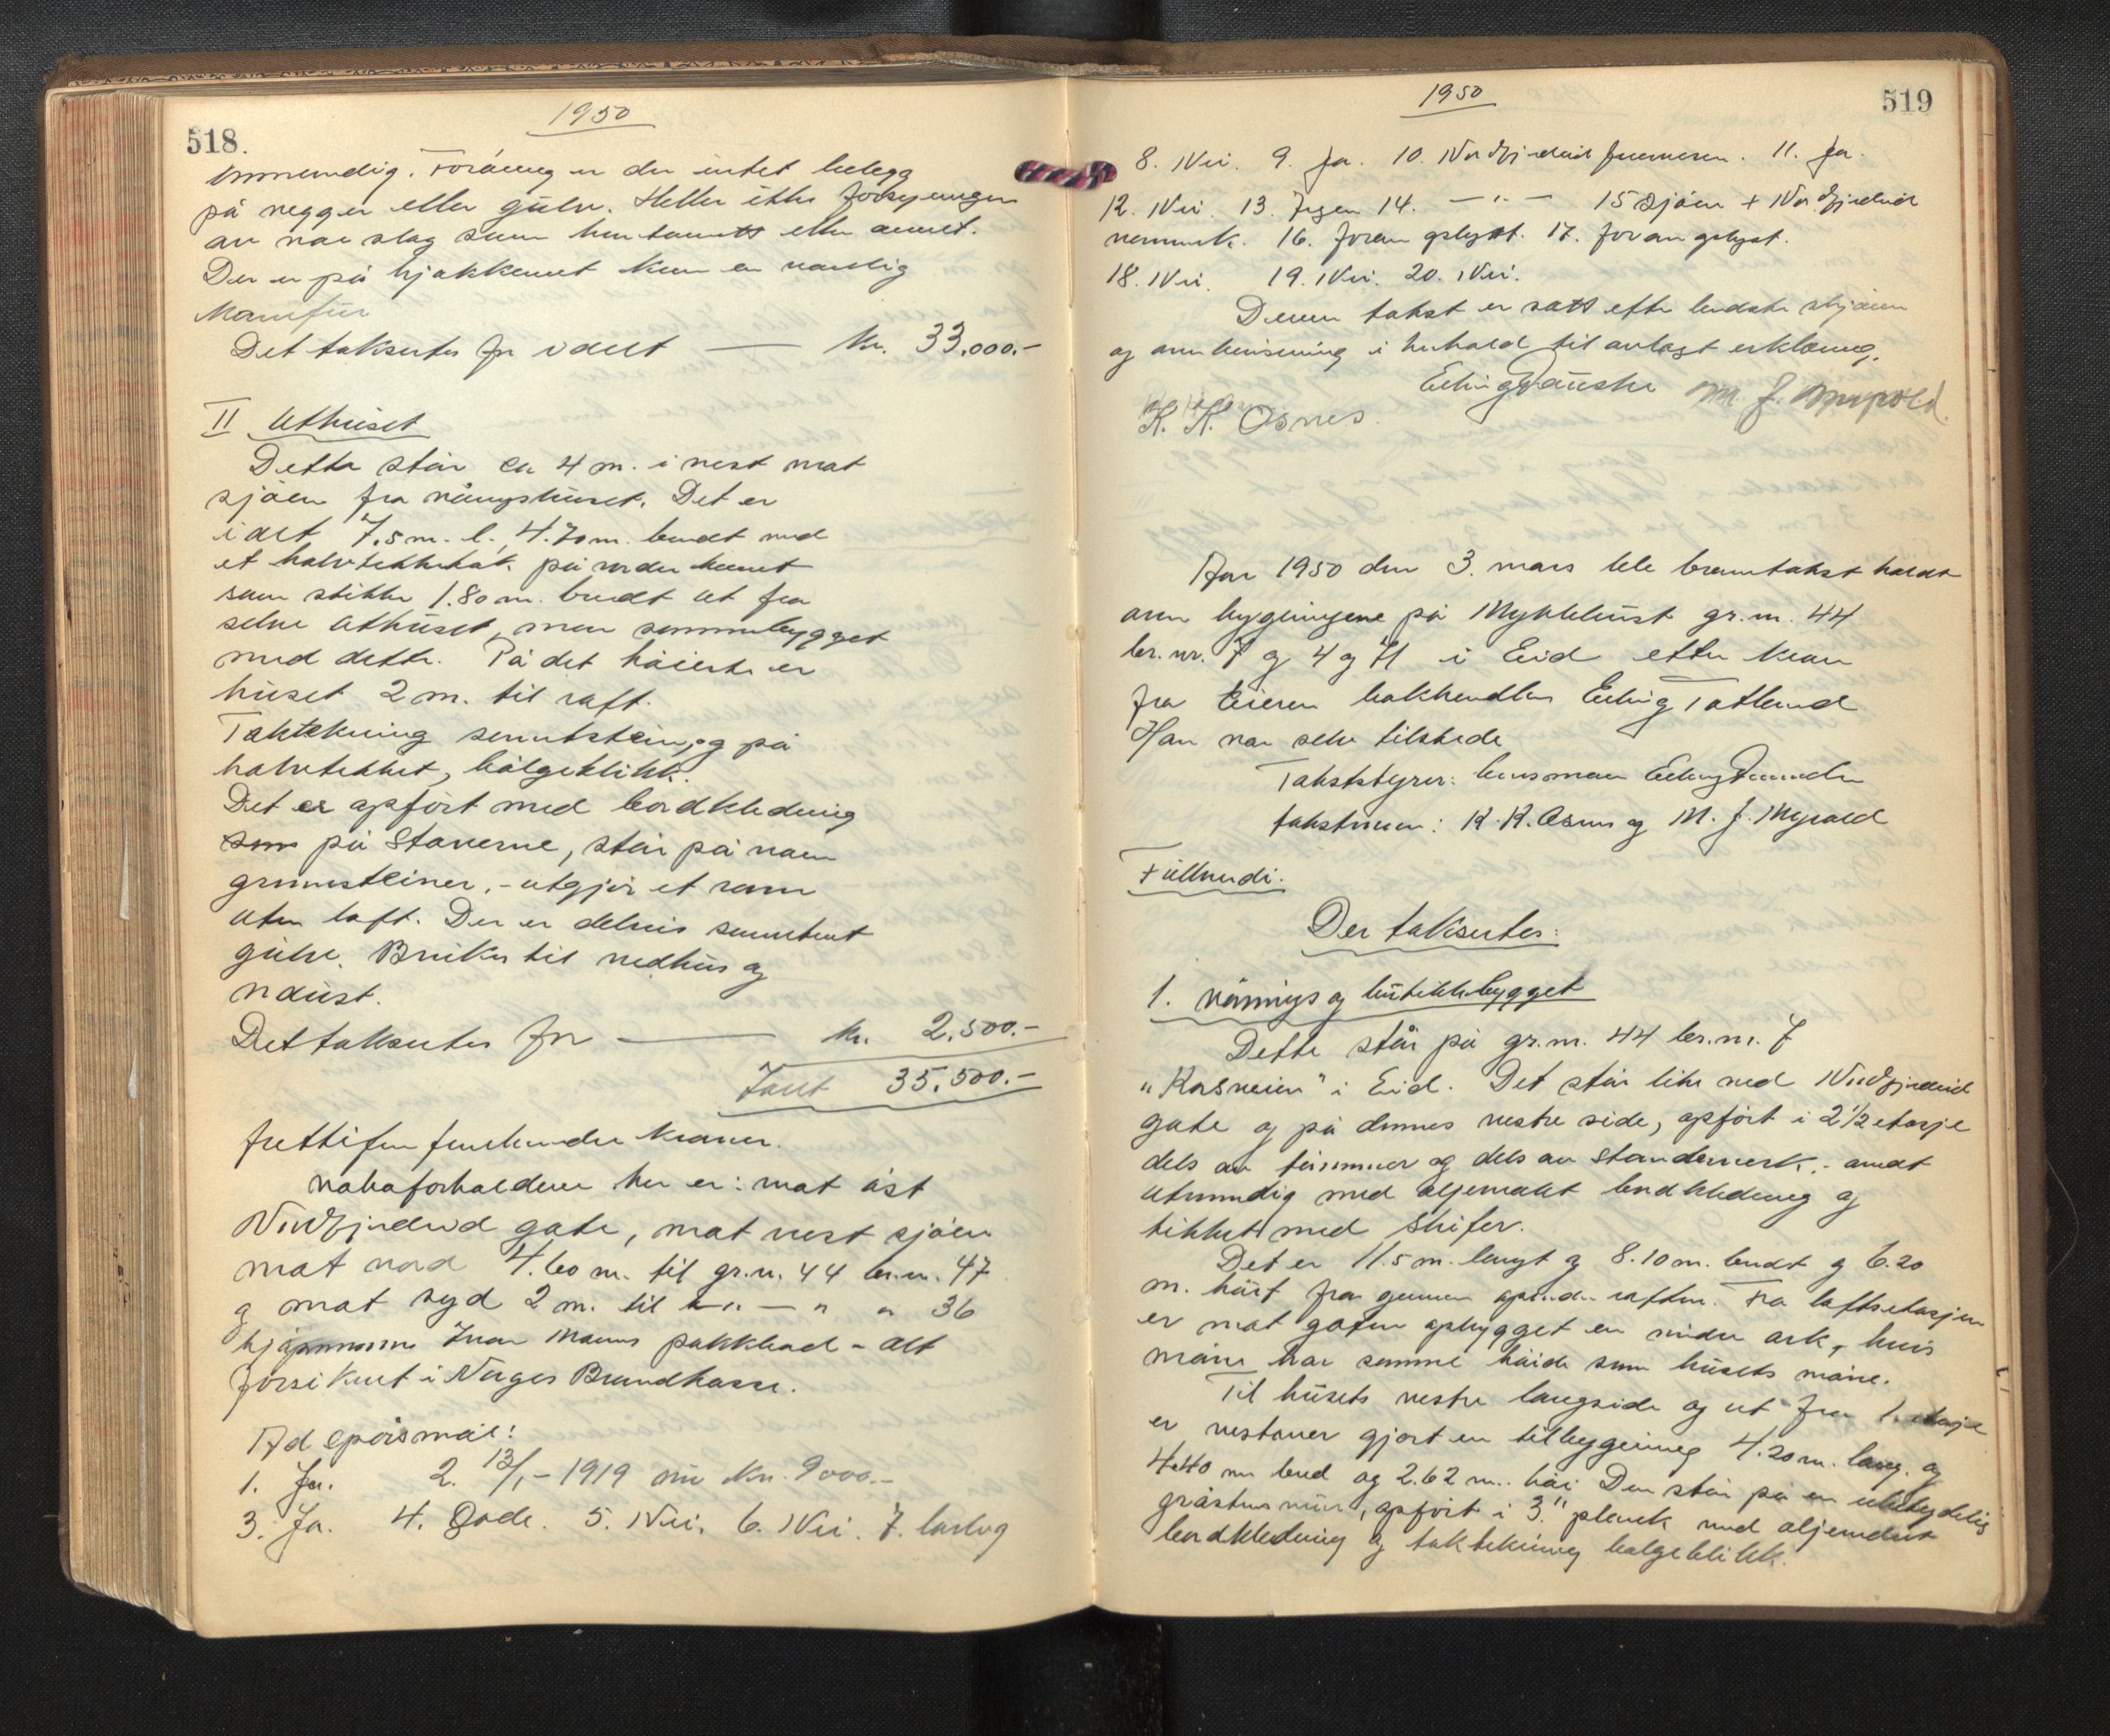 1950
518.
innvendig. Foråvrig er der intet belegg
på vegger eller gulv. Heller ikke forsyninger
av noe slag som annet.
Der er på kjøkkenet kun en vanlig
komfür
Det takseres for i alt — kr. 33.000.-
II Uthuset
Dette står ca 4 m. i vest mot
sjøen fra våningshuset. Det er
i alt 7.5 m. l., 4.70 m. bredt med
et halvtekket på
som stikker 1.80 m. bredt ut fra
selve uthuset, men sammenbygget
med dette. På det høieste er
huset 2 m. til raft.
Taktekning sementstein, og på
halvtekket, bølgeblikk.
Det er opført med bordkledning
som på staverne, står på noen
grunnsteiner, - utgjør et rom
uten loft. Der er delvis sementert
gulv. Brukes til vedhus og
naust.
Det takseres for — kr. 2.500.-
I alt 35.500.-
frettifem femhundre kroner.
Naboforholdene her er: mot øst
Nordfjordeid gate, mot vest sjøen
mot nord 4.60 m. til gr.n. 44 br.n. 47
og mot syd 2 m. til — " — " " 36
Ivar Manns pakkbod - alt
forsikret i Norges Brandkasse.
Ad spørsmål:
1. Ja. 2. 13/1 - 1919 nu kr. 9000.-
3. Ja. 4. Gode. 5. Nei. 6. Nei. 7.
1950
519
8. Nei. 9. Ja. 10. Nordfjordeid 11. Ja.
12. Nei. 13. Ingen 14. — " — 15 Sjøen + Nordfjordeid
vannverk. 16. Foran gslyst. 17. foran gslyst.
18. Nei. 19. Nei. 20. Nei.
Denne takst er satt efter bedste skjønn
og overbevisning i henhold til avlagt erklæring.
Erling M. J. Myrvold.
K. K. Osnes.
Aar 1950 den 3. mars ble branntakst holdt
over bygningene på Myklebust gr.nr. 44
br.nr. 7 og 4 og 71 i Eid etter krav
fra eieren Erling Totland
Han var selv tilstede
Takststyrer: lensmann Erling
takstmenn: K. K. Osnes og M. J. Myrvold
Der takseres:
1. Vånings og butikkbygget
Dette står på gr.nr. 44 br.nr. 7
i Eid. Det står like ved Nordfjordeid
gate og på dennes vestre side, opført i 2 1/2 etasje
dels av tømmer og dels av standerverk, - anait
utvendig med oljemalt bordkledning og
tekket med skifer.
Det er 11.5 m. langt og 8.10 m. bredt og 6.20
m. høit fra grunnen op under raften. Fra loftsetasjen
er mot gaten opbygget en mindre ark, hvis
møne har samme høide som husets møne.
Til husets vestre langside og ut fra 1. etasje
er gjort en tilbygning 4.20 m. lang og
4.40 m bred og 2.62 m. høi. Den står på en ubetydelig
gråstensmur, opført i 3" plank med oljemalt
bordkledning og taktekning bølgeblikk.